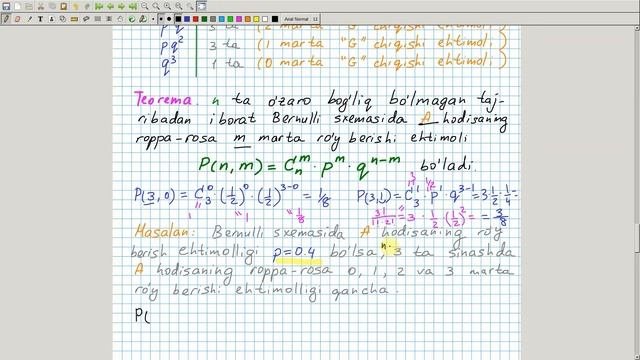 pq² | 3 ta (1 marta "G" chiqishi ehtimoli)
q³ | 1 ta (0 marta "G" chiqishi ehtimoli)
Teorema. n ta o'zaro bog'liq bo'lmagan taj-
ribadan iborat Bernulli sxemasida A hodisaning
roppa-rosa m marta ro'y berishi ehtimoli
P(n, m) = Cₙᵐ · pᵐ · qⁿ⁻ᵐ bo'ladi.
P(3,0) = C₃⁰ · (1/2)⁰ · (1/2)³⁻⁰ = 1/8
1 1 1/8
P(3,1) = C₃¹ · p¹ · q³⁻¹ = 3 · 1/2 · 1/4 =
3!/(1!·2!) = 3 · 1/2 · (1/2)² = = 3/8
Masalan: Bernulli sxemasida A hodisaning ro'y
berish ehtimolligi p=0.4 bo'lsa, 3 ta sinashda
n.
A hodisaning roppa-rosa 0, 1, 2 va 3 marta
ro'y berishi ehtimolligi qancha.
P(